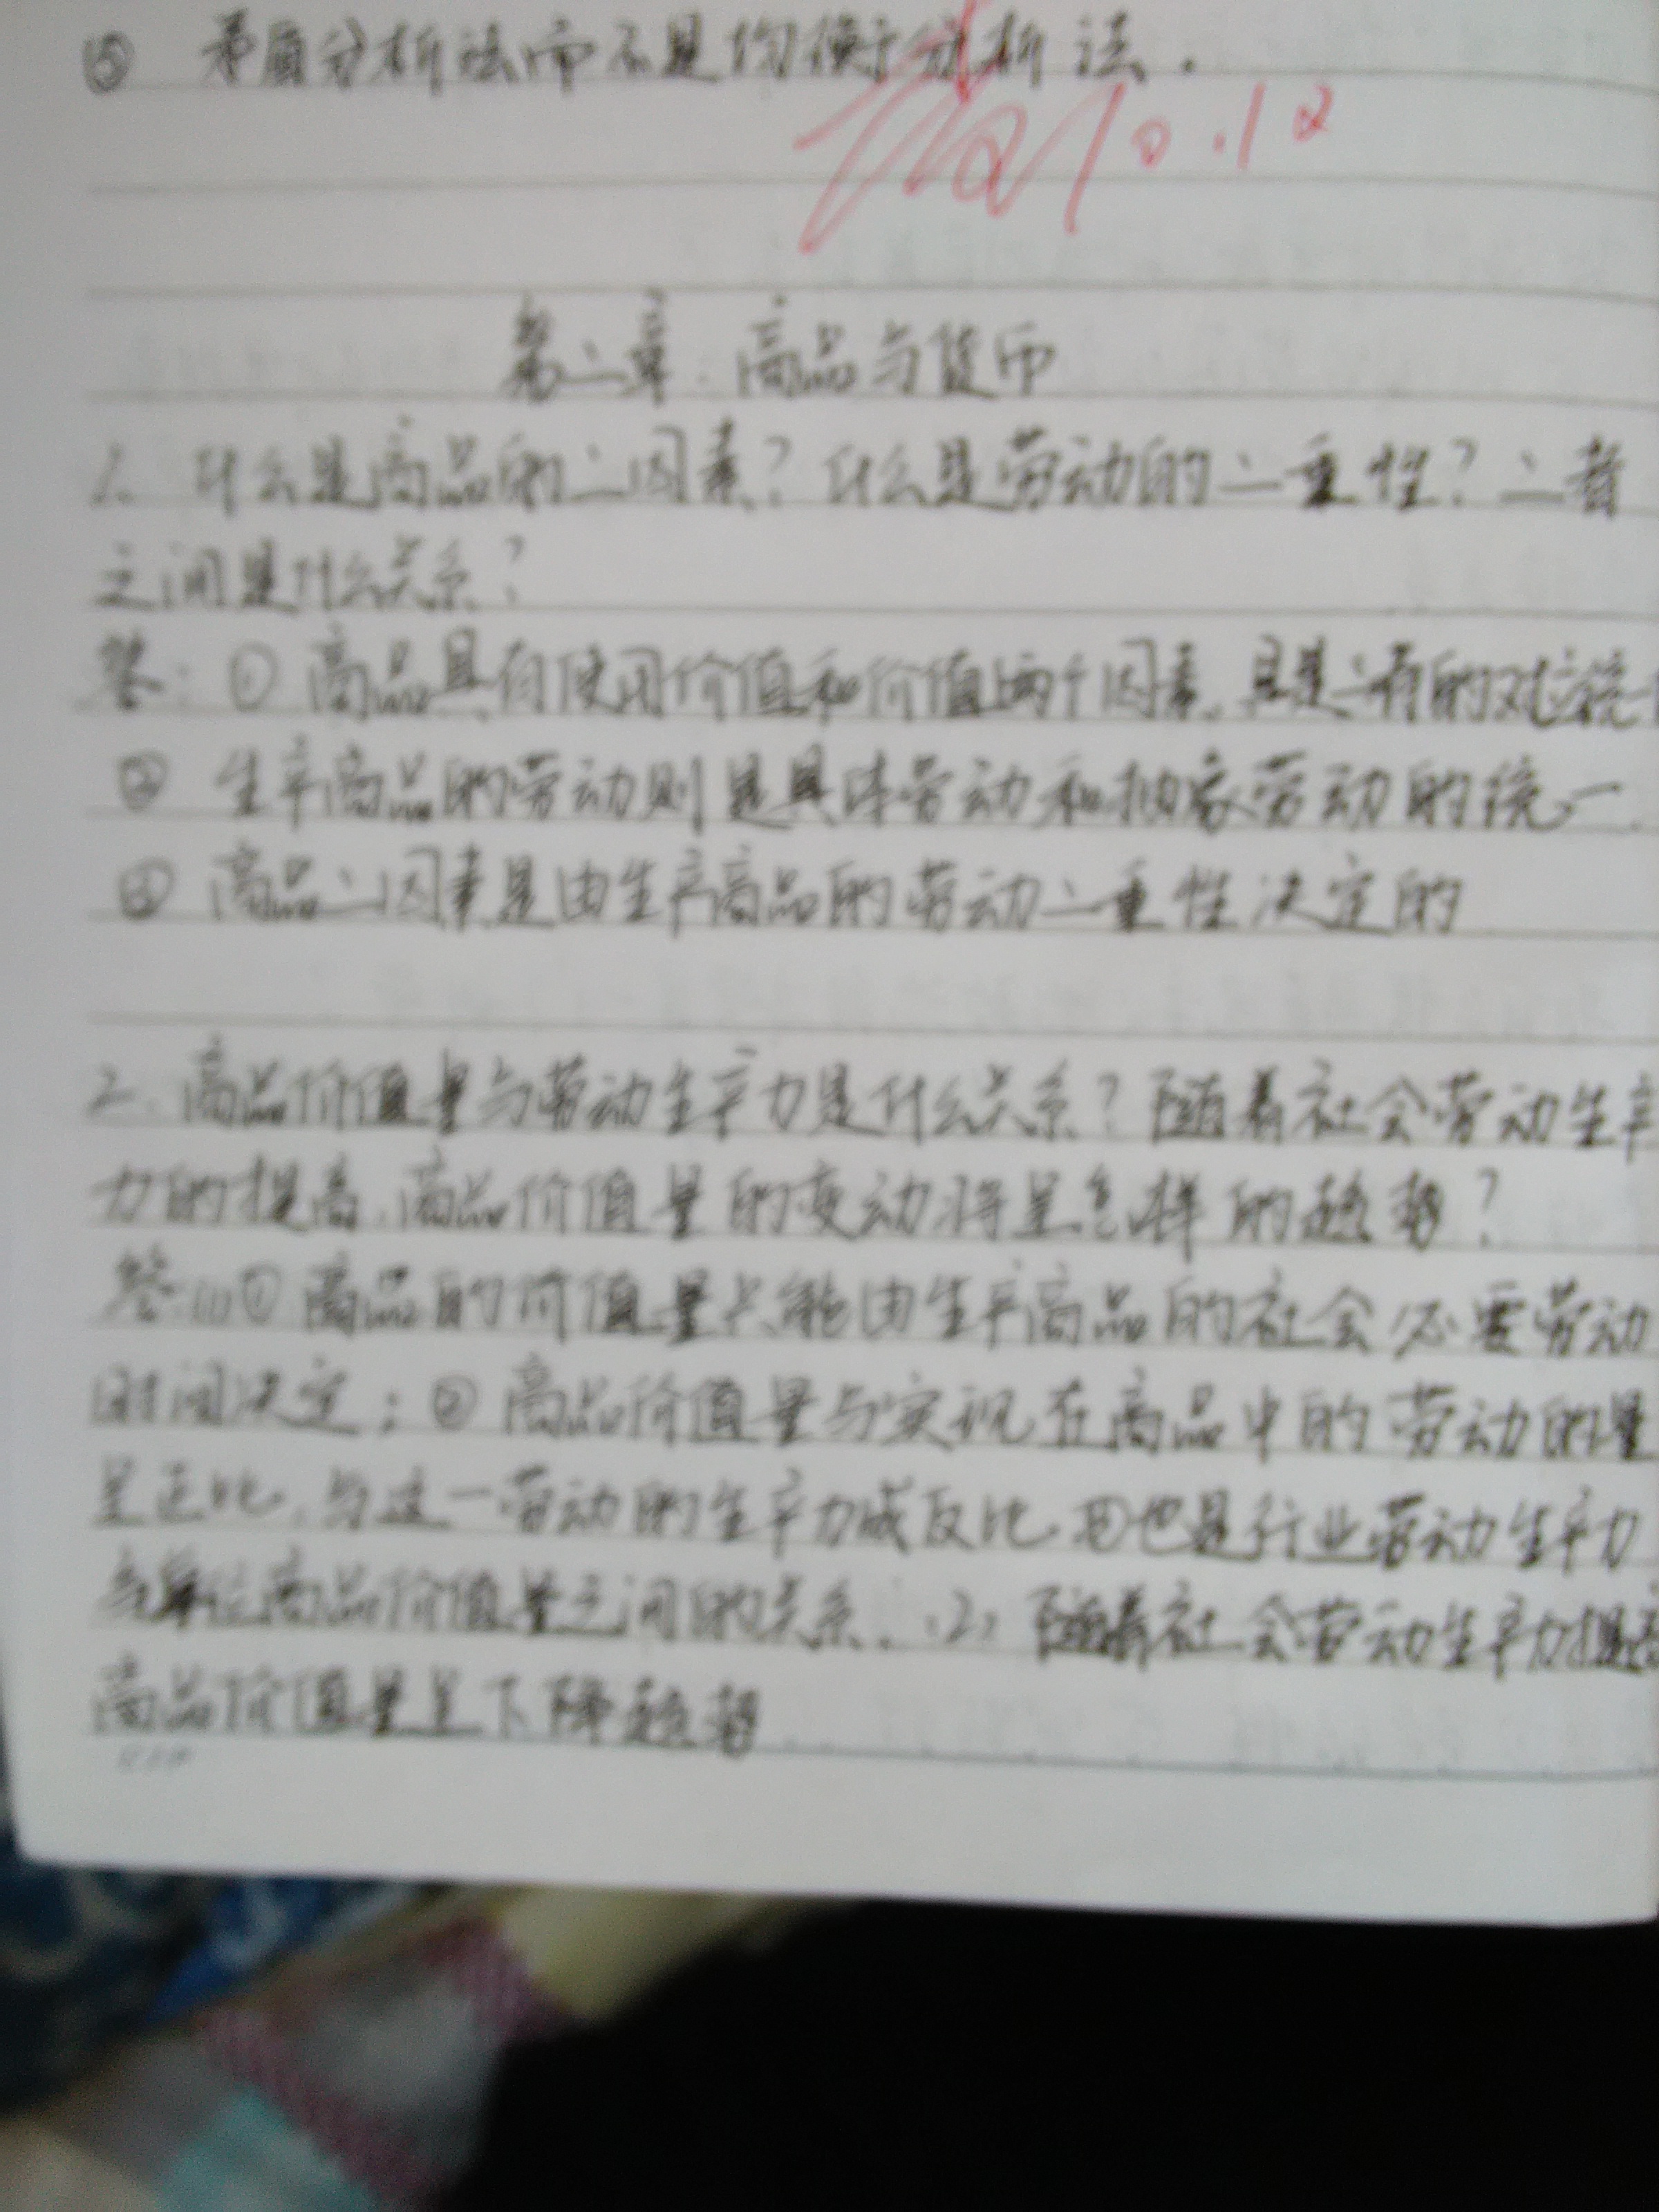 ⑤ 矛盾分析法而不是均衡分析法.
10.12
第二章:商品与货币
1. 什么是商品的二因素?什么是劳动的二重性?二者
之间是什么关系?
答:① 商品具有使用价值和价值两个因素,且是二者的对立统一
② 生产商品的劳动则是具体劳动和抽象劳动的统一.
③ 商品二因素是由生产商品的劳动二重性决定的
2. 商品价值量与劳动生产力是什么关系?随着社会劳动生产
力的提高,商品价值量的变动将呈怎样的趋势?
答:(1)① 商品的价值量只能由生产商品的社会必要劳动
时间决定;② 商品价值量与实现在商品中的劳动的量
呈正比,与这一劳动的生产力成反比.也是行业劳动生产力
与单位商品价值量之间的关系.(2) 随着社会劳动生产力提高
商品价值量呈下降趋势